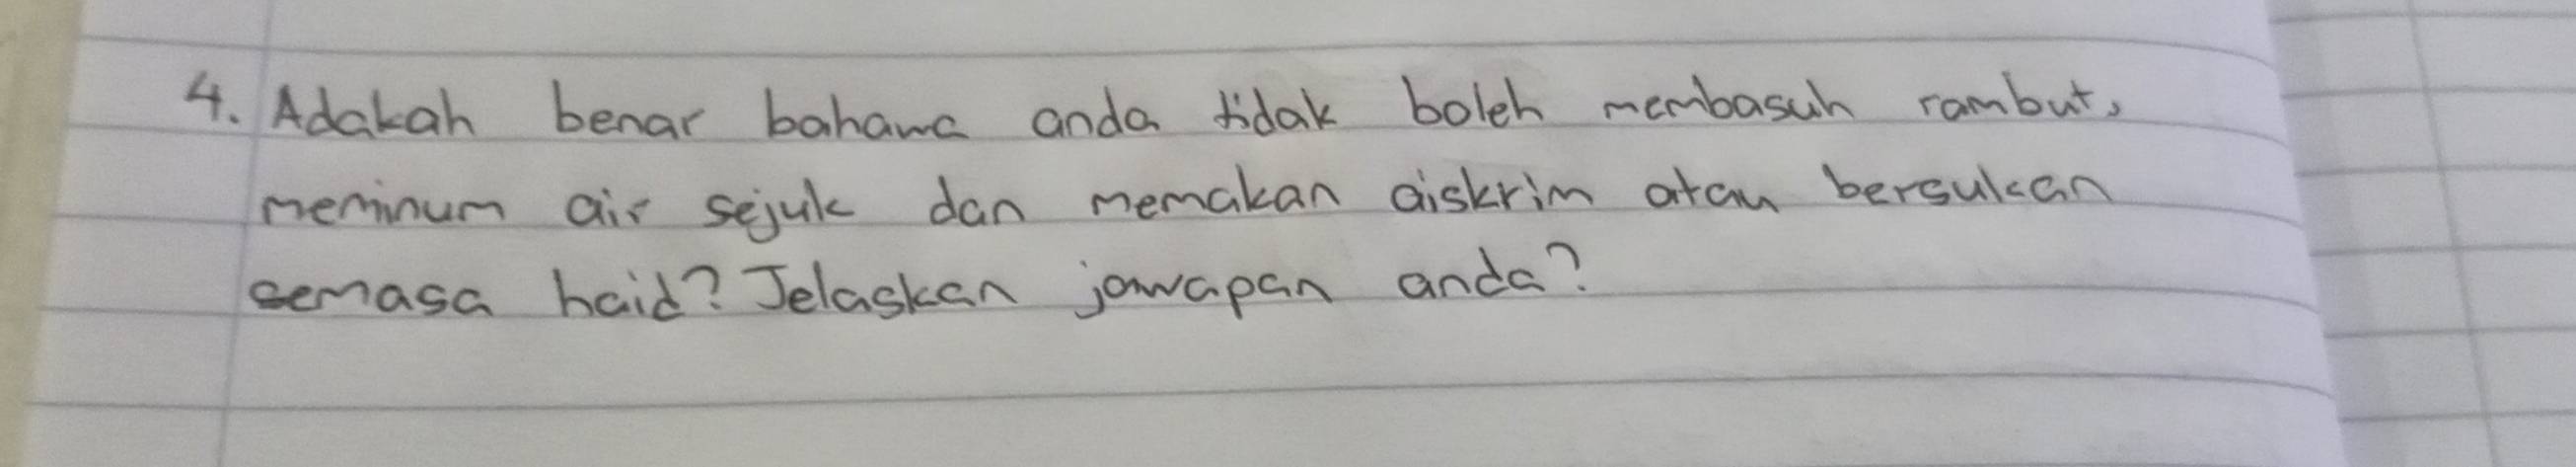 4. Adakah benar bahawa anda tidak boleh membasuh rambut,
meminum air sejuk dan memakan aiskrim atau bersukan
semasa haid? Jelaskan jawapan anda?